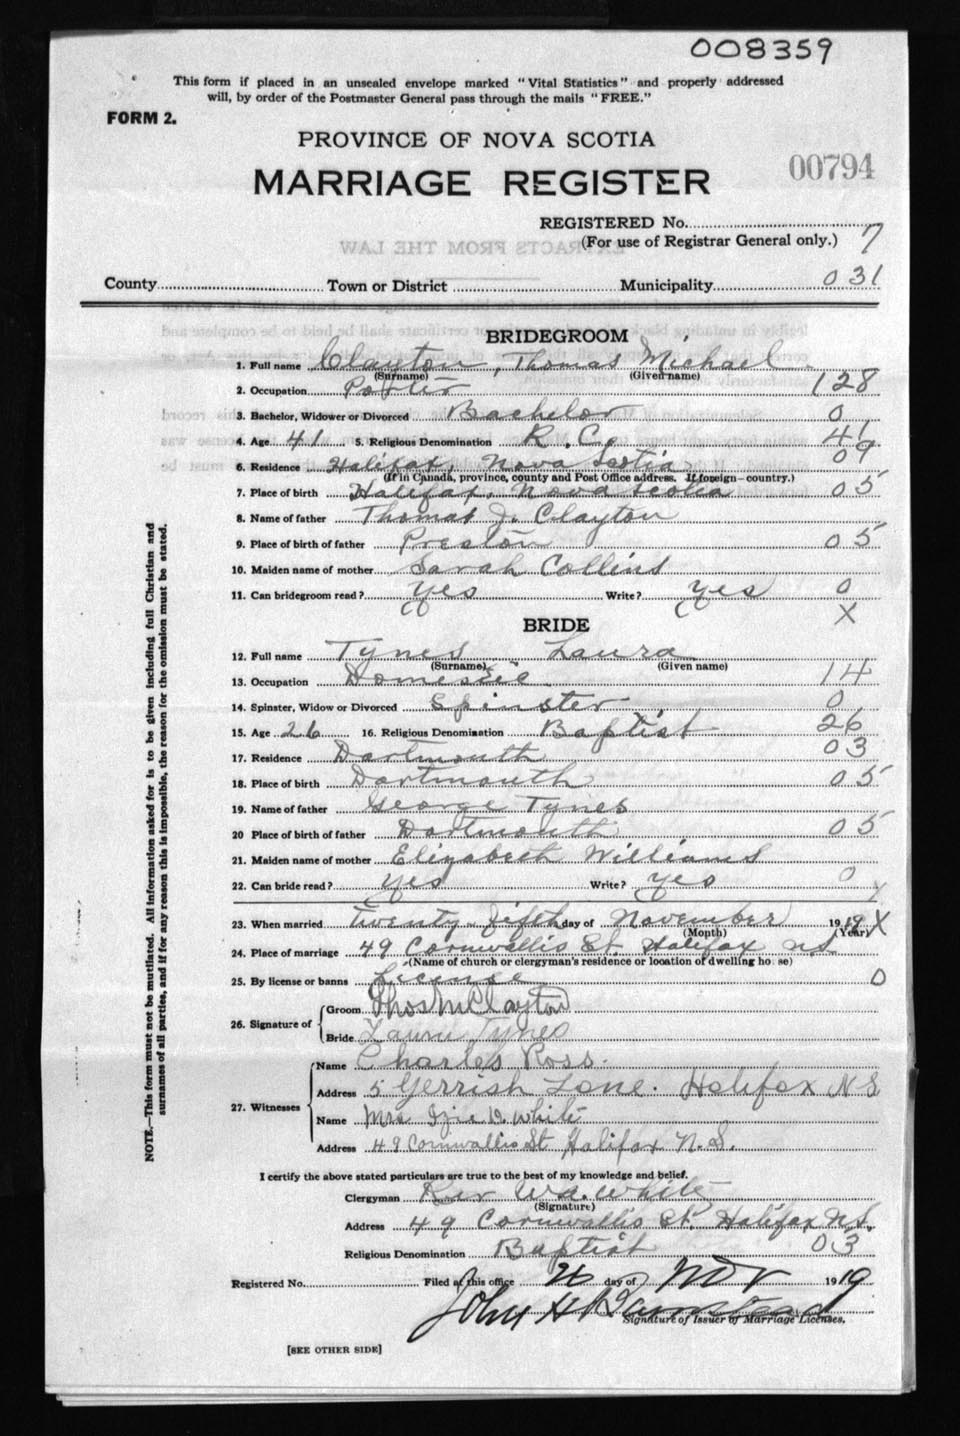 008359
This form if placed in an unsealed envelope marked "Vital Statistics" and properly addressed
will, by order of the Postmaster General pass through the mails "FREE."
FORM 2.
PROVINCE OF NOVA SCOTIA
00794
MARRIAGE REGISTER
REGISTERED No.
(For use of Registrar General only.) 7
County Town or District Municipality 031
BRIDEGROOM
1. Full name Clayton, Thomas Michael
(Surname) (Given name)
2. Occupation Porter 128
3. Bachelor, Widower or Divorced Bachelor 0
4. Age 41 5. Religious Denomination R.C. 41
6. Residence Halifax, Nova Scotia 09
(If in Canada, province, county and Post Office address. If foreign—country.)
7. Place of birth Halifax, Nova Scotia 05
8. Name of father Thomas J. Clayton
9. Place of birth of father Preston 05
10. Maiden name of mother Sarah Collins
11. Can bridegroom read? Yes Write? yes 0
X
BRIDE
12. Full name Tynes Laura
(Surname) (Given name)
13. Occupation Domestic 14
14. Spinster, Widow or Divorced Spinster 0
15. Age 26 16. Religious Denomination Baptist 26
17. Residence Dartmouth 03
18. Place of birth Dartmouth 05
19. Name of father George Tynes
20 Place of birth of father Dartmouth 05
21. Maiden name of mother Elizabeth Williams
22. Can bride read? yes Write? yes 0
X
23. When married twenty-fifth day of November 1919 X
(Month) (Year)
24. Place of marriage 49 Cornwallis St. Halifax NS
(Name of church or clergyman's residence or location of dwelling house)
25. By license or banns License 0
26. Signature of
Groom Thos M Clayton
Bride Laura Tynes
27. Witnesses
Name Charles Ross.
Address 5 Gerrish Lane. Halifax N S
Name Mrs Izie D. White
Address 49 Cornwallis St Halifax N.S.
I certify the above stated particulars are true to the best of my knowledge and belief.
Clergyman Rev Wa. White
(Signature)
Address 49 Cornwallis St. Halifax N.S.
Religious Denomination Baptist 03
Registered No. Filed at this office 26 day of Nov 1919
John H
Signature of Issuer of Marriage Licenses.
[SEE OTHER SIDE]
NOTE.—This form must not be mutilated. All information asked for is to be given including full Christian and
surnames of all parties, and if for any reason this is impossible, the reason for the omission must be stated.